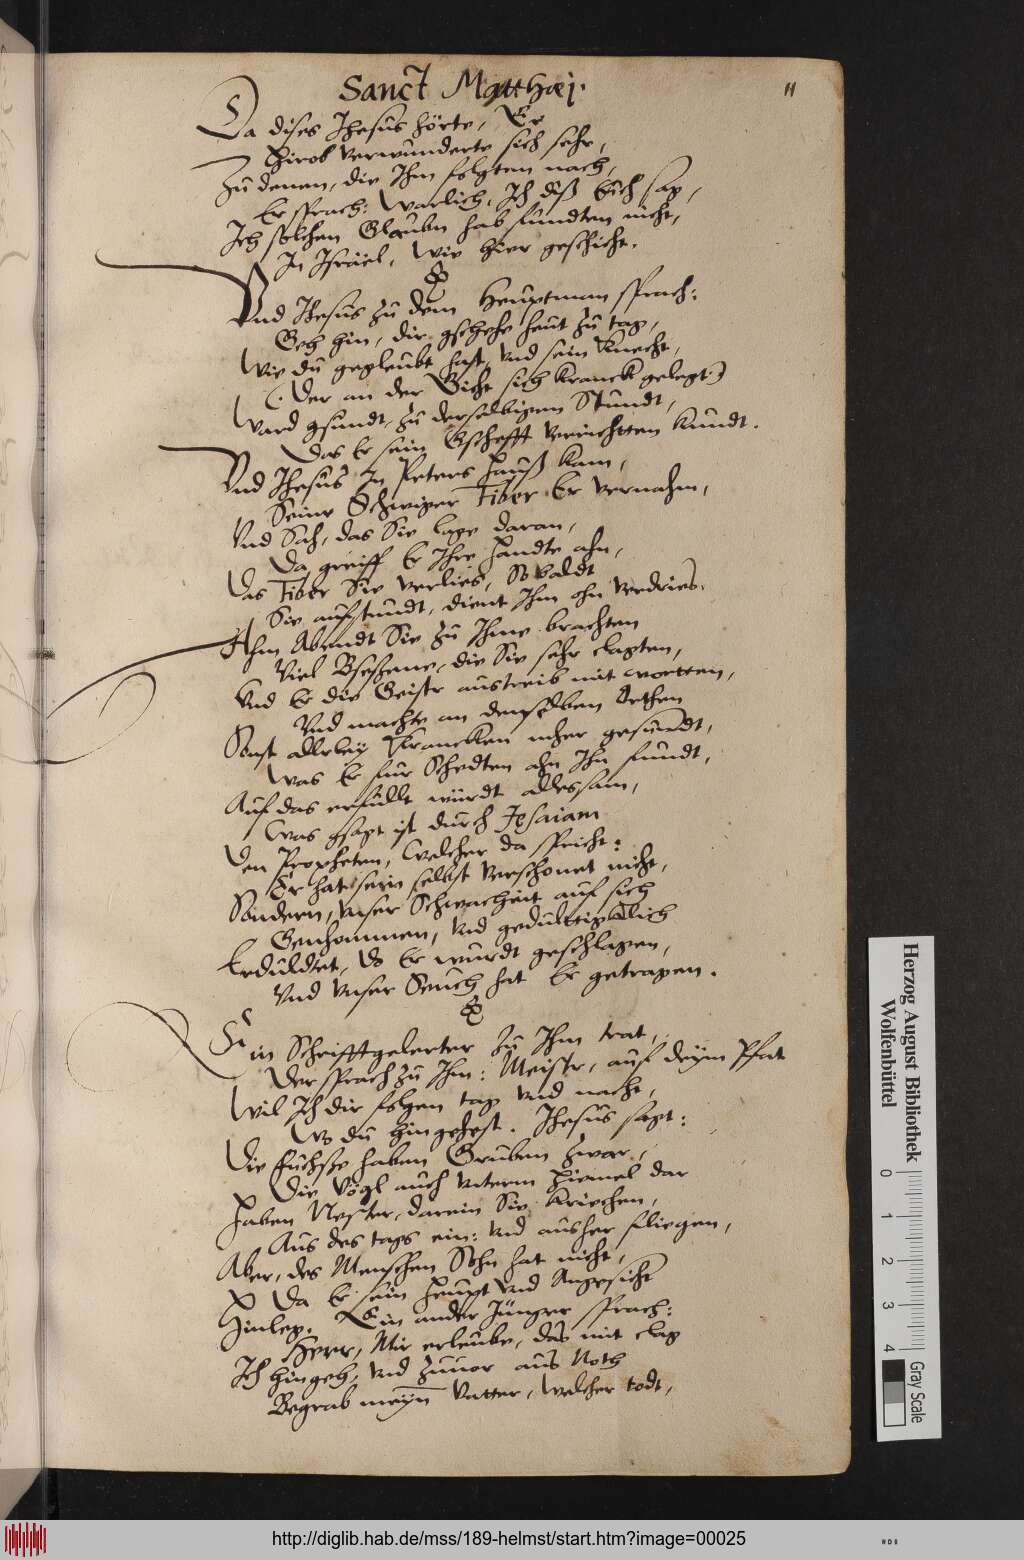 Sanct Matthæi.
11
Da dises Jhesus hörte, Er
Hirob verwunderte sich sehr,
Zu denen, die Ihm folgten nach,
Er sprach: Warlich, Ich diß Euch sag,
Ich solchen Glauben hab fundten nicht,
In Israel, wie hier geschicht.
Vnd Jhesus zu dem Heuptman sprach:
Geh hin, dir gschehe heut zu tag,
Wie du gegleubt hast, vnd sein Knecht,
(Der an der Gicht sich kranck gelegt)
Ward gsundt, zu derselbigen Stundt,
Das Er sein Gschefft verrichtten kundt.
Vnd Jhesus In Peters Hauß kam,
Seine Schwiger Fiber Er vernahm,
Vnd Sah, das Sie lage daran,
Da greiff Er Ihre Handte ahn,
Das Fiber Sie verlies, So baldt
Sie aufstundt, dient Ihm ohn verdries.
Ahm Abendt Sie zu Ihme brachten
Viel Bseßene, die Sie sehr clagten,
Vnd Er die Geistr austreib mit wortten,
Vnd machte an denselben Orthen
Sonst allerley Krancken mher gesundt,
Was Er fur Schedten ahn Ihn fundt,
Auf das erfüllt würdt allessam,
Was gsagt ist durch Jesaiam
Den Propheten, welcher da spricht:
Er hat sein selbst verschonet nicht,
Sondern, vnser Schwacheit auf sich
Genhommen, vnd gedulttigklich
Erduldtet, do Er wurdt geschlagen,
Vnd vnser Seuch hat Er getragen.
Ein Schrifftgelerter zu Ihm trat,
Der sprach zu Ihm: Meistr, auf deym Pfat
Wil Ich dir folgen tag vnd nacht,
Wo du hingehest. Jhesus sagt:
Die füchße haben Gruben zwar,
Die Vögl auch vnterm Himel dar
Haben Nester, darein Sie kriechen,
Aus des tags ein: vnd ausher fliegen,
Aber, des Menschen Sohn hat nicht,
Da Er sein Heupt vnd Angesicht
Hinleg. Ein ander Jünger sprach:
Herr, Mir erleube, das mit clag
Ich hingeh, vnd zuuor aus Noth
Begrab meyn Vatter, welcher todt,
Herzog August Bibliothek
Wolfenbüttel
0 1 2 3 4
Gray Scale
http://diglib.hab.de/mss/189-helmst/start.htm?image=00025